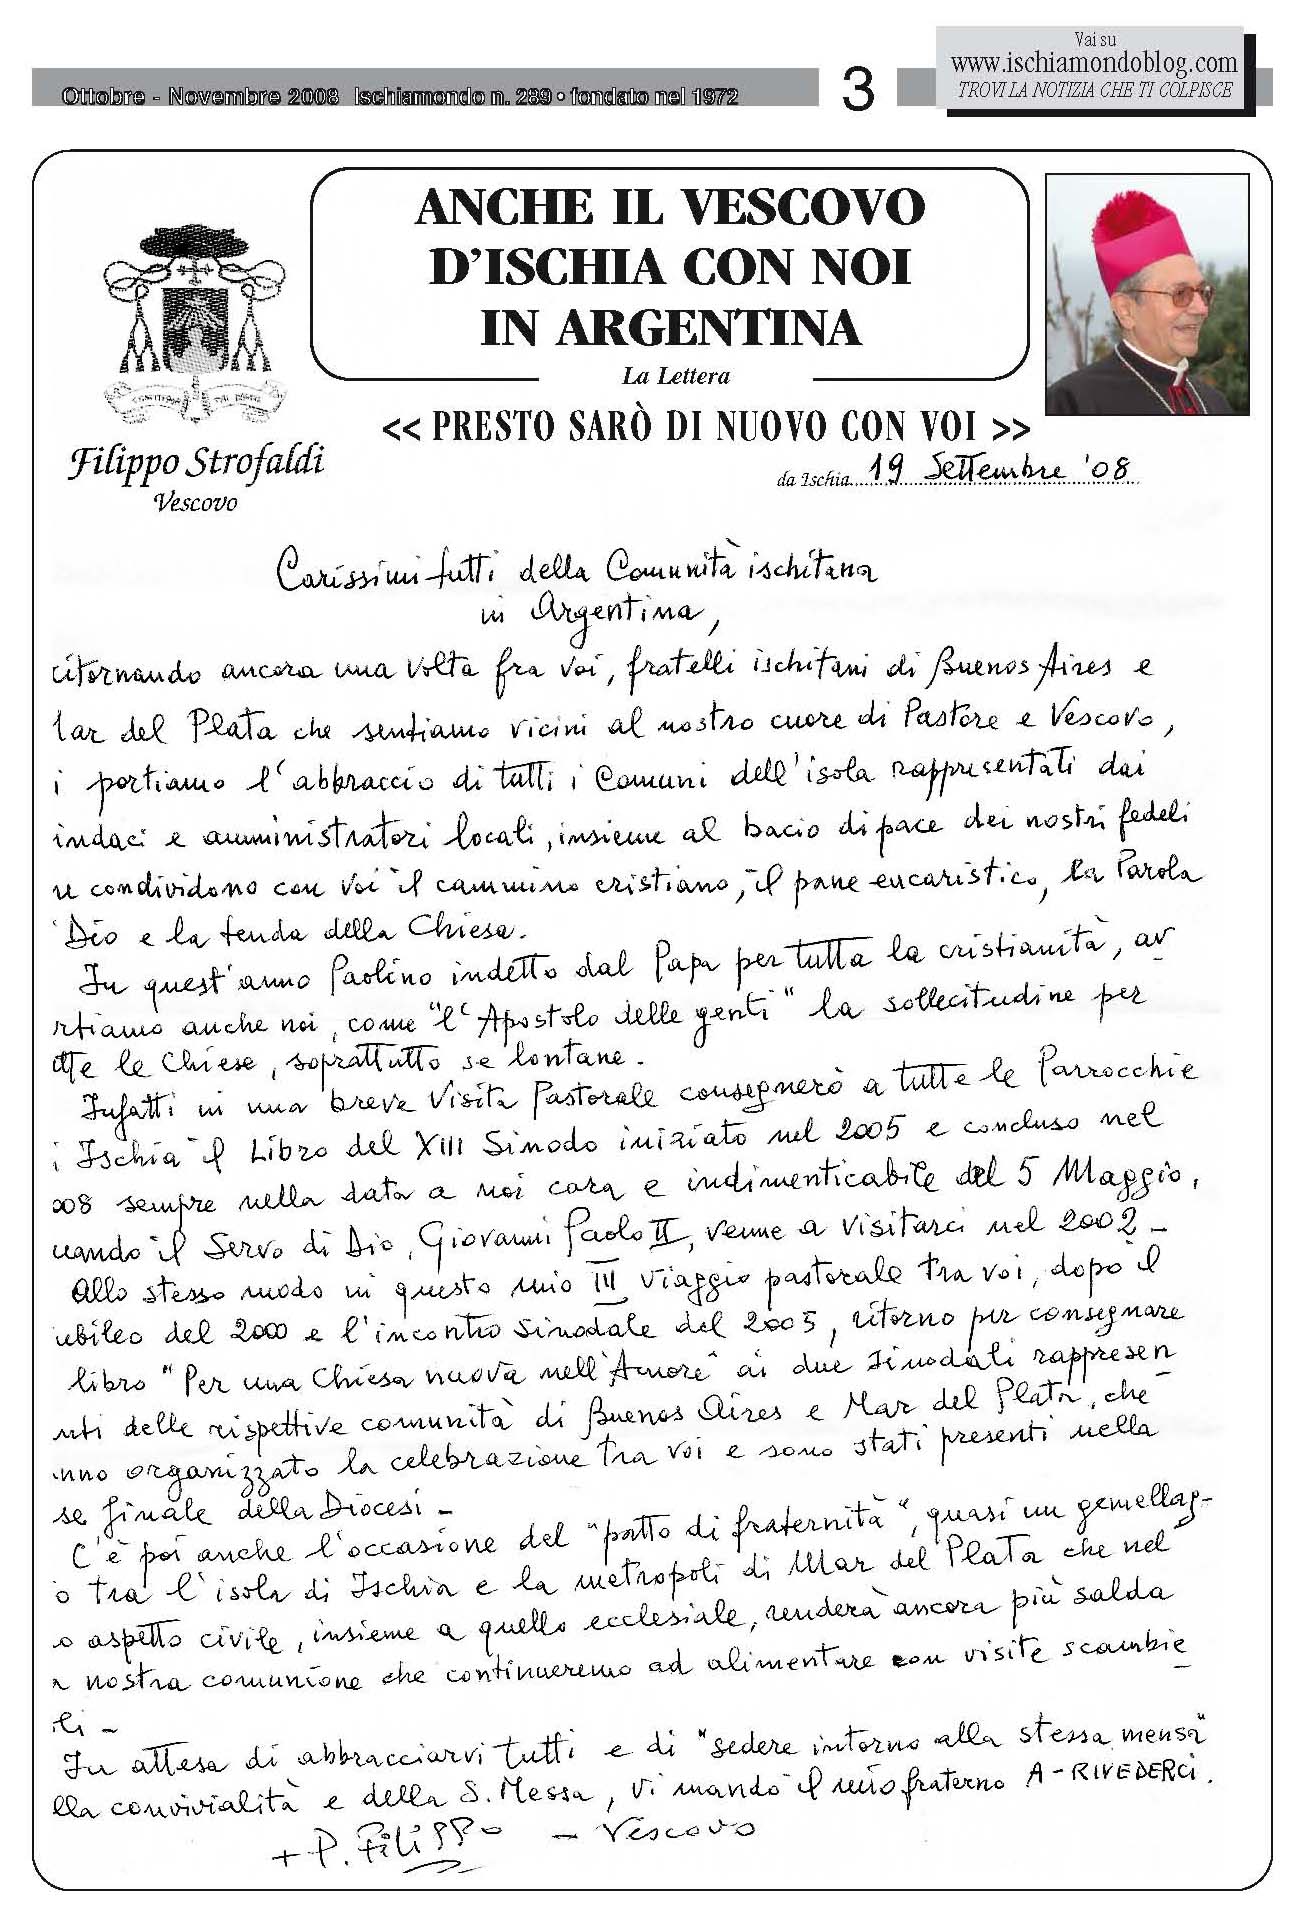 Vai su
www.ischiamondoblog.com
TROVI LA NOTIZIA CHE TI COLPISCE
Ottobre - Novembre 2008 Ischiamondo n. 289 • fondato nel 1972
3
ANCHE IL VESCOVO
D'ISCHIA CON NOI
IN ARGENTINA
La Lettera
<< PRESTO SARÒ DI NUOVO CON VOI >>
Filippo Strofaldi
Vescovo
da Ischia 19 Settembre '08
Carissimi tutti della Comunità ischitana
in Argentina,
ritornando ancora una volta fra voi, fratelli ischitani di Buenos Aires e
lar del Plata che sentiamo vicini al nostro cuore di Pastore e Vescovo,
i portiamo l'abbraccio di tutti i Comuni dell'isola rappresentati dai
indaci e amministratori locali, insieme al bacio di pace dei nostri fedeli
e condividono con voi il cammino cristiano, il pane eucaristico, la Parola
Dio e la tenda della Chiesa.
In quest'anno Paolino indetto dal Papa per tutta la cristianità, av
rtiamo anche noi, come "l'Apostolo delle genti" la sollecitudine per
tte le Chiese, soprattutto se lontane.
Infatti in una breve Visita Pastorale consegnerò a tutte le Parrocchie
i Ischia il Libro del XIII Sinodo iniziato nel 2005 e concluso nel
008 sempre nella data a noi cara e indimenticabile del 5 Maggio,
uando il Servo di Dio, Giovanni Paolo II, venne a visitarci nel 2002 -
Allo stesso modo in questo mio III viaggio pastorale tra voi, dopo il
ubileo del 2000 e l'incontro Sinodale del 2005, ritorno per consegnare
libro "Per una Chiesa nuova nell'Amore" ai due Sinodali rappresen
nti delle rispettive comunità di Buenos Aires e Mar del Plata, che
nno organizzato la celebrazione tra voi e sono stati presenti nella
se finale della Diocesi -
C'è poi anche l'occasione del "patto di fraternità", quasi un gemellag-
o tra l'isola di Ischia e la metropoli di Mar del Plata che nel
o aspetto civile, insieme a quello ecclesiale, renderà ancora più salda
a nostra comunione che continueremo ad alimentare con visite scambie
li -
In attesa di abbracciarvi tutti e di "sedere intorno alla stessa mensa"
lla convivialità e della S. Messa, vi mando il mio fraterno A-RIVEDERCI.
+ P. Filippo - Vescovo